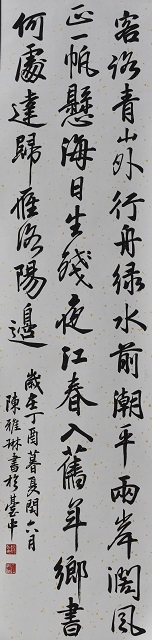 客路青山外行舟綠水前潮平兩岸闊風
正一帆懸海日生殘夜江春入舊年鄉書
何處達歸雁洛陽邊
歲在丁酉暮夏閏六月
陳雅琳書於臺中